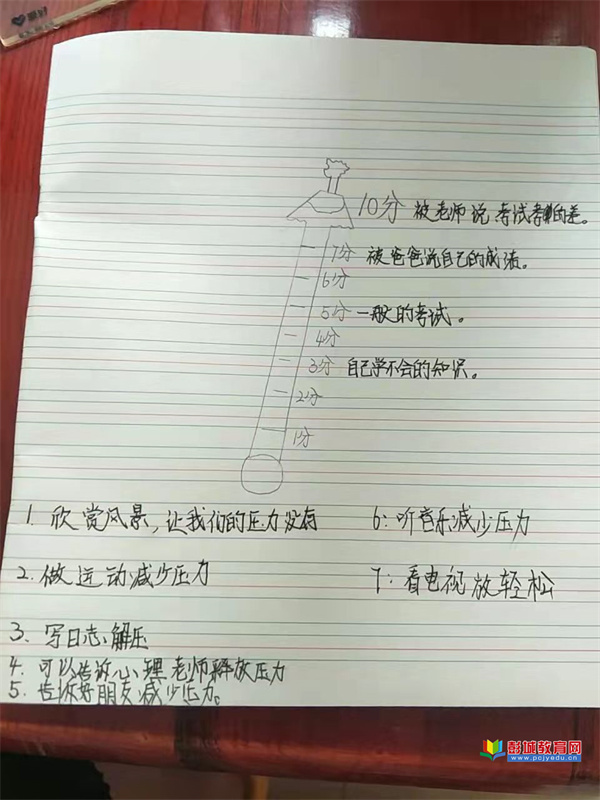 10分 被老师说考试考的差。
7分 被爸爸说自己的成绩。
6分
5分 一般的考试。
4分
3分 自己学不会的知识。
2分
1分
1. 欣赏风景,让我们的压力没有
2. 做运动减少压力
3. 写日志解压
4. 可以告诉心理老师释放压力
5. 告诉好朋友减少压力。
6: 听音乐减少压力
7: 看电视放轻松
彭城教育网
www.pcjyedu.cn